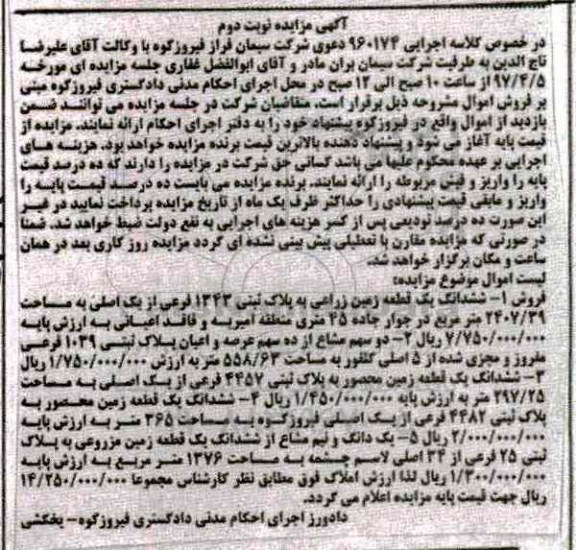 آگهی مزایده نوبت دوم
در خصوص کلاسه اجرایی ۹۶۰۱۷۴ دعوی شرکت سیمان فراز فیروزکوه با وکالت آقای علیرضا
تاج الدین به طرفیت شرکت سیمان بران مادر و آقای ابوالفضل غفاری جلسه مزایده ای مورخه
۹۷/۴/۵ از ساعت ۱۰ صبح الی ۱۲ صبح در محل اجرای احکام مدنی دادگستری فیروزکوه مبنی
بر فروش اموال مشروحه ذیل برقرار است. متقاضیان شرکت در جلسه مزایده می توانند ضمن
بازدید از اموال واقع در فیروزکوه پیشنهاد خود را به دفتر اجرای احکام ارائه نمایند. مزایده از
قیمت پایه آغاز می شود و پیشنهاد دهنده بالاترین قیمت برنده مزایده خواهد بود. هزینه های
اجرایی بر عهده محکوم علیها می باشد کسانی حق شرکت در مزایده را دارند که ده درصد قیمت
پایه را واریز و فیش مربوطه را ارائه نمایند. برنده مزایده می بایست ده درصد قیمت پایه را
واریز و مابقی قیمت پیشنهادی را حداکثر ظرف یک ماه از تاریخ مزایده پرداخت نمایید در غیر
این صورت ده درصد تودیعی پس از کسر هزینه های اجرایی به نفع دولت ضبط خواهد شد. ضمنا
در صورتی که مزایده مقارن با تعطیلی پیش بینی نشده ای گردد مزایده روز کاری بعد در همان
ساعت و مکان برگزار خواهد شد.
لیست اموال موضوع مزایده:
فروش ۱- ششدانگ یک قطعه زمین زراعی به پلاک ثبتی ۱۳۴۳ فرعی از یک اصلی به مساحت
۲۴۰۷/۳۹ متر مربع در جوار جاده ۴۵ متری منطقه امیریه و فاقد اعیانی به ارزش پایه
۷/۷۵۰/۰۰۰/۰۰۰ ریال ۲- دو سهم مشاع از ده سهم عرصه و اعیان پلاک ثبتی ۱۰۳۹ فرعی
مفروز و مجزی شده از ۵ اصلی گلفور به مساحت ۵۵۸/۶۳ متر به ارزش ۱/۷۵۰/۰۰۰/۰۰۰ ریال
۳- ششدانگ یک قطعه زمین محصور به پلاک ثبتی ۴۴۵۷ فرعی از یک اصلی به مساحت
۲۹۷/۲۵ متر به ارزش پایه ۱/۴۵۰/۰۰۰/۰۰۰ ریال ۴- ششدانگ یک قطعه زمین محصور به
پلاک ثبتی ۴۴۸۲ فرعی از یک اصلی فیروزکوه به مساحت ۳۶۵ متر به ارزش پایه
۲/۰۰۰/۰۰۰/۰۰۰ ریال ۵- یک دانگ و نیم مشاع از ششدانگ یک قطعه زمین مزروعی به پلاک
ثبتی ۲۵ فرعی از ۳۴ اصلی لاسم چشمه به مساحت ۱۳۷۶ متر مربع به ارزش پایه
۱/۳۰۰/۰۰۰/۰۰۰ ریال لذا ارزش املاک فوق مطابق نظر کارشناس مجموعا ۱۴/۲۵۰/۰۰۰/۰۰۰
ریال جهت قیمت پایه مزایده اعلام می گردد.
دادورز اجرای احکام مدنی دادگستری فیروزکوه- یخکشی